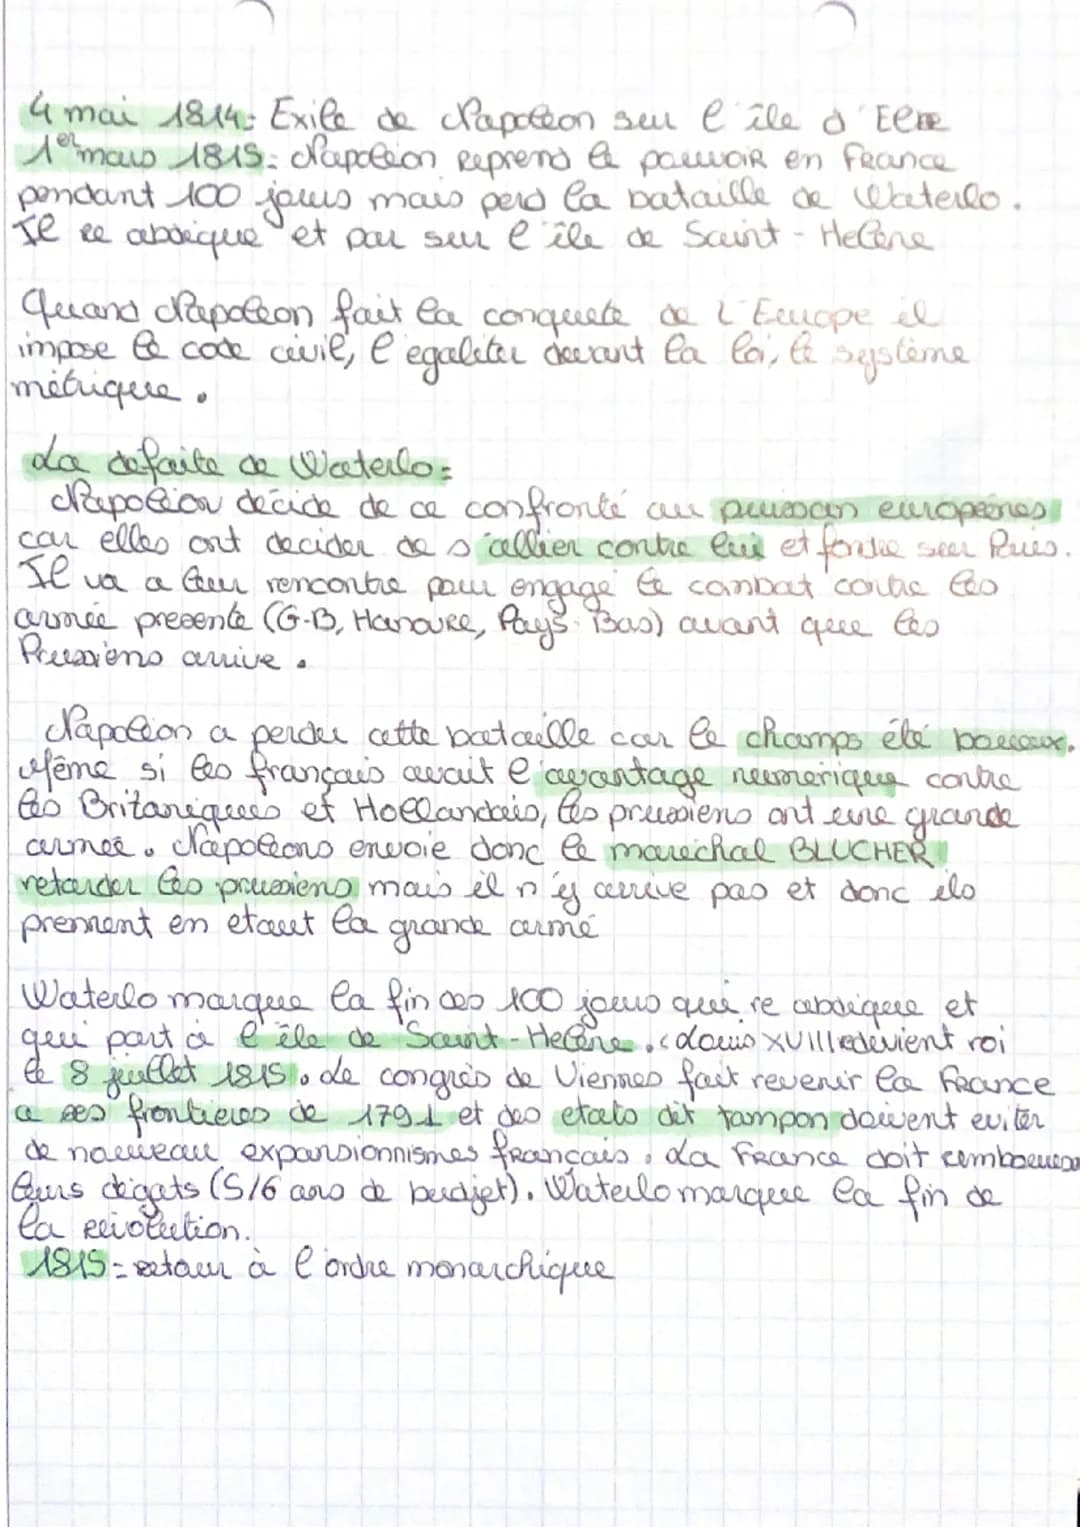 4 mai 1814: Exile de Napoléon sur l'île d'Elbe
1er mars 1815: Napoléon reprend le pouvoir en France
pendant 100 jours mais perd la bataille de Waterlo.
Il re abdique et par sur l'île de Saint-Helène
Quand Napoléon fait la conquete de l'Europe il
impose le code civil, l'egaliter devant la loi, le système
métrique.
La defaite de Waterlo:
Napoléon décide de ce confronté au puissan européenes
car elles ont decider de s'allier contre lui et fondre sur Paris.
Il va a leur rencontre pour engagé le combat contre les
armée presente (G-B, Hanovre, Pays-Bas) avant que les
Prussiens arrive.
Napoléon a perdu cette bataille car le champs été boueux.
Même si les français avait l'avantage numerique contre
les Britaniques et Hollandais, les prussiens ont une grande
armée. Napoléons envoie donc le maréchal BLUCHER
retarder les prussiens mais il n'y arrive pas et donc ils
prennent en etaut la grande armé
Waterlo marque la fin des 100 jours qui re abdique et
qui part à l'île de Saint-Helène. Louis XVIII redevient roi
le 8 juillet 1815. Le congrès de Viennes fait revenir la France
a ses frontieres de 1791 et des etats dit tampon doivent eviter
de nouveau expansionnismes français. La France doit rembourser
leurs dégats (5/6 ans de budjet). Waterlo marque la fin de
la révolution.
1815: retour à l'ordre monarchique